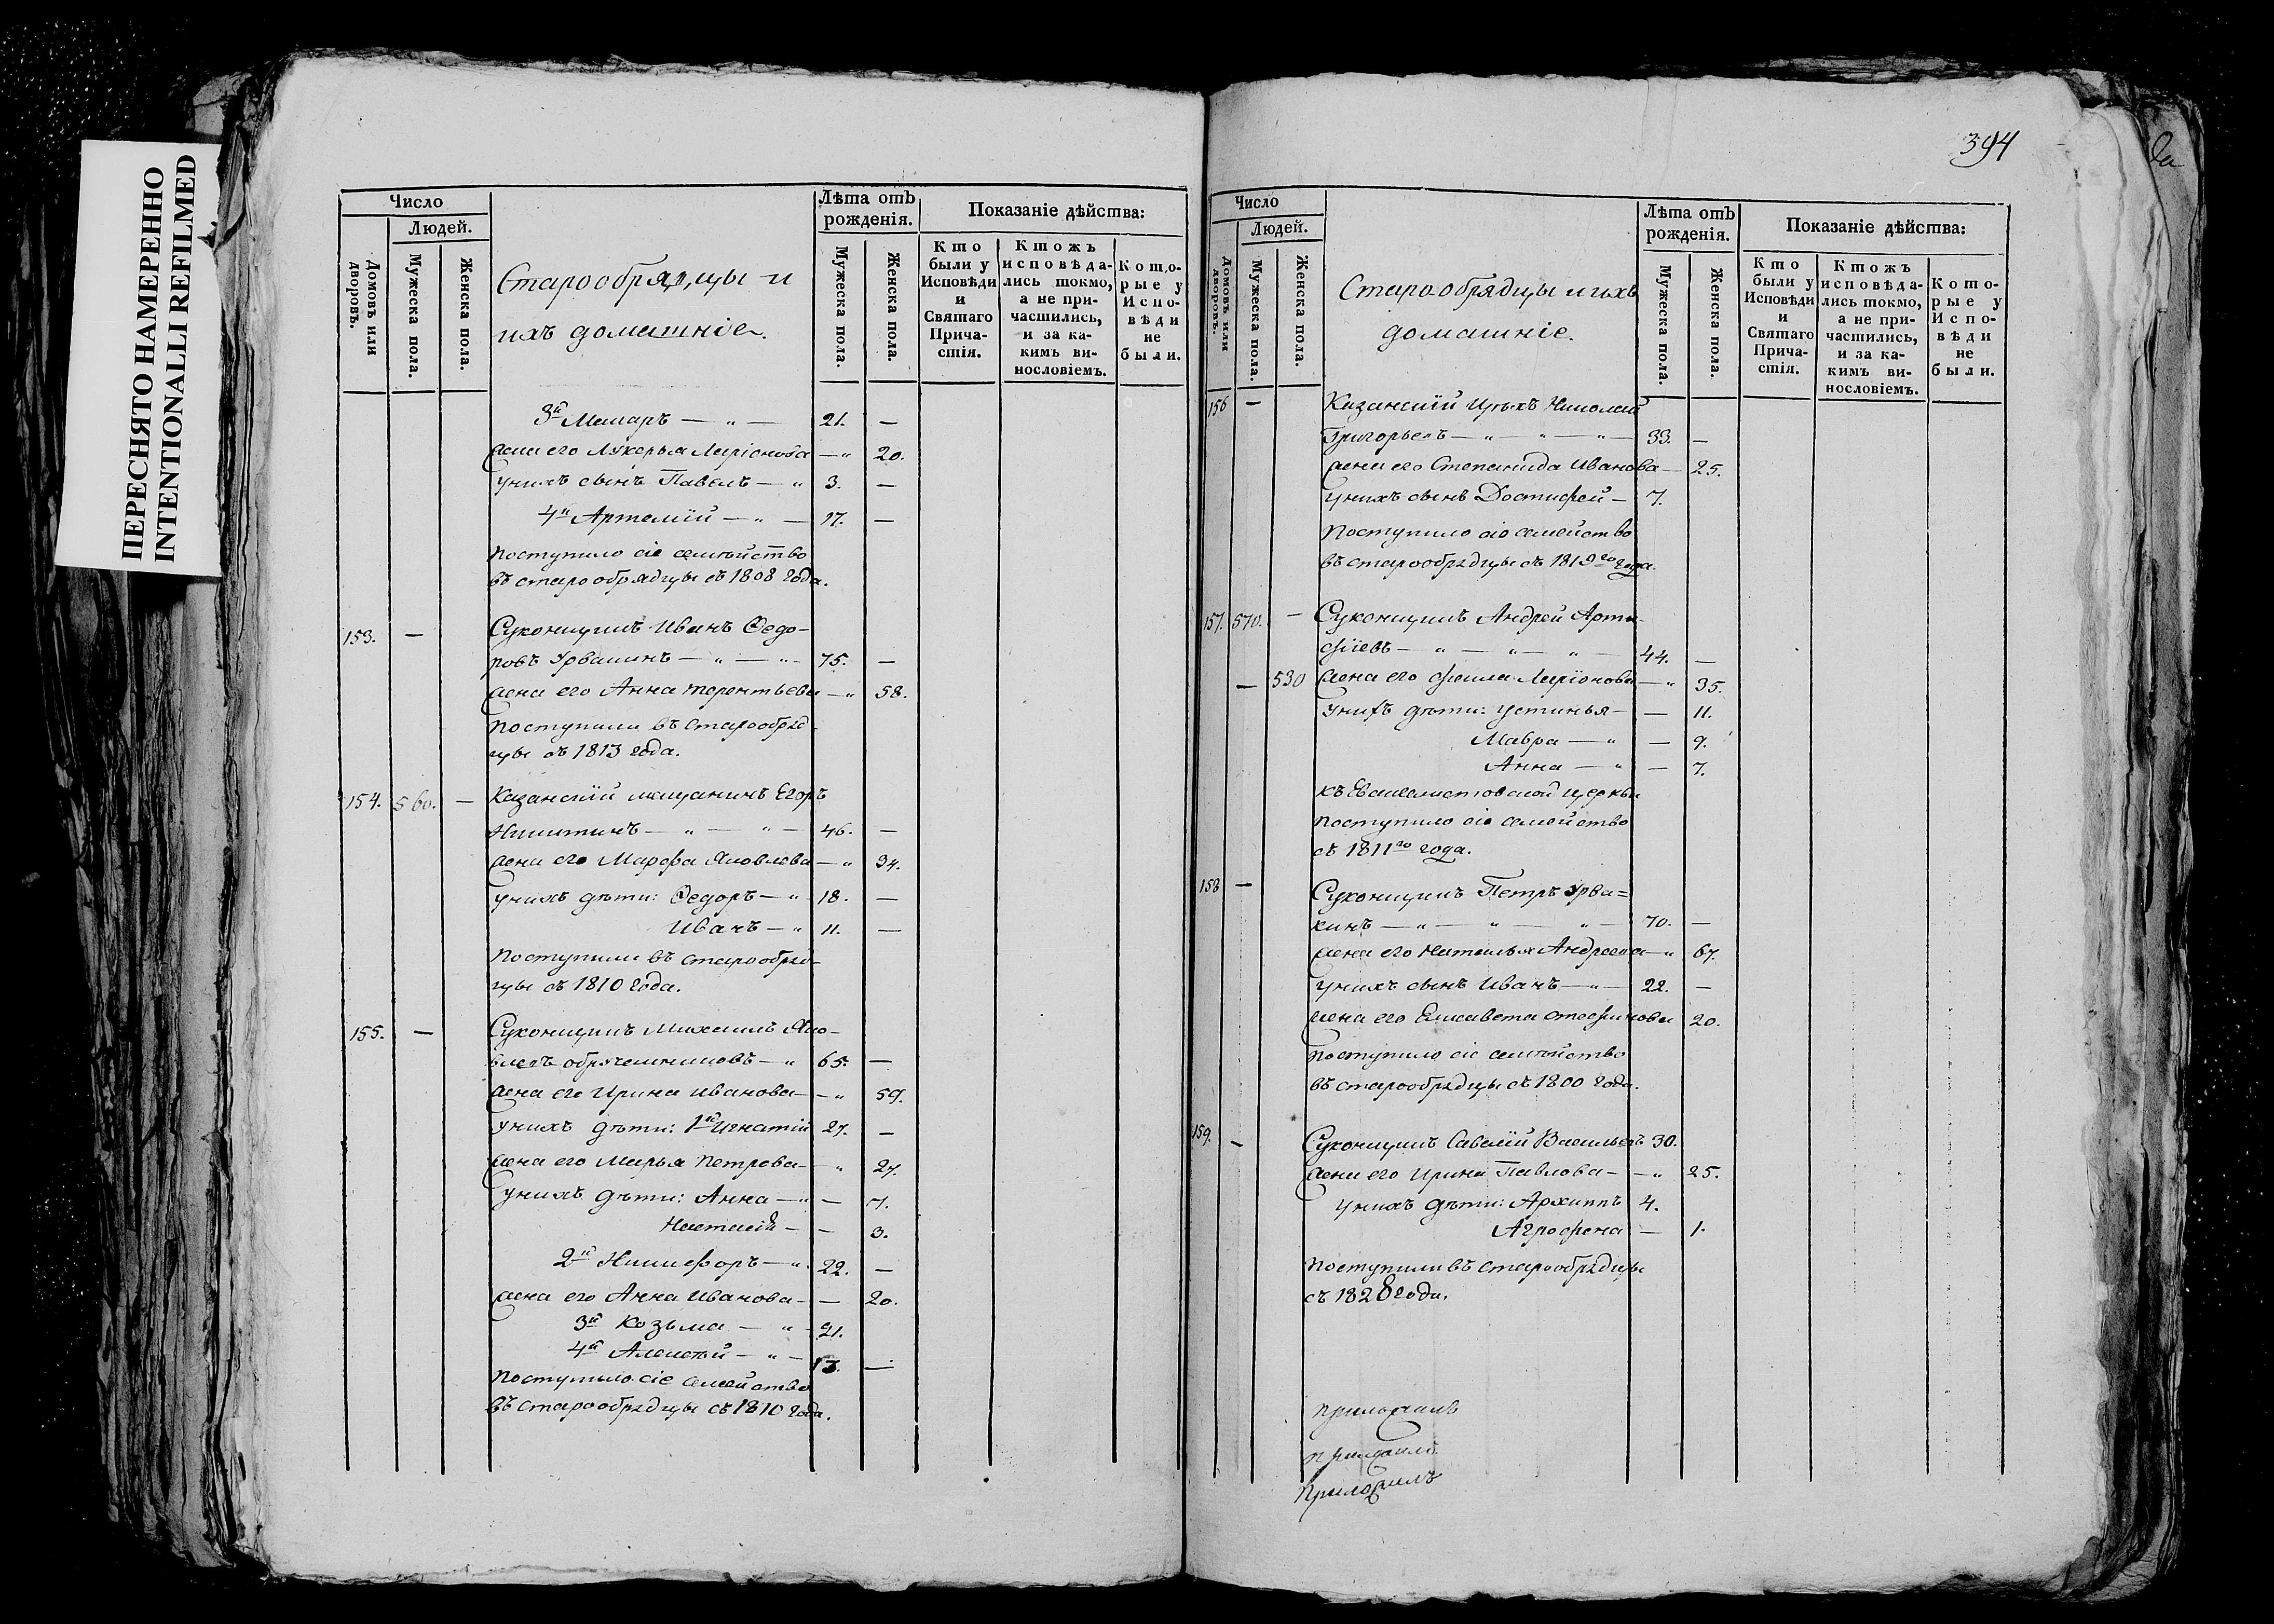 ПЕРЕСНЯТО НАМЕРЕННО
INTENTIONALLI REFILMED
Число
Людей.
Домовъ или дворовъ.
Мужеска пола.
Женска пола.
Старообрядцы и
ихъ домашніе.
Лѣта отъ рожденія.
Мужеска пола.
Женска пола.
Показаніе дѣйства:
Кто были у Исповѣди и Святаго Причастія.
Ктожъ исповѣдались токмо, а не причастились, и за какимъ винословіемъ.
Которые у Исповѣди не были.
3й Макаръ — „ — 21. —
жена его Лукерья Ларіонова — „ 20.
у нихъ сынъ Павелъ — „ 3. —
4й Артемій — „ — 17. —
поступило сіе семѣйство
въ старообрядцы съ 1808 года.
153. — Суконщикъ Иванъ Ѳедо-
ровъ Урванинъ — „ — „ - 75. —
жена его Анна Терентьева — „ 58.
поступили въ старообряд-
цы съ 1813 года.
154. 560. — Казанскій мещанинъ Егоръ
Никитинъ — „ — „ — 46. —
жена его Марфа Яковлева — „ 34.
у нихъ дѣти: Ѳедоръ — „ 18. —
Иванъ — „ 11. —
поступили въ старообряд-
цы съ 1810 года.
155. — Суконщикъ Михаилъ Яко-
влевъ — „ 65. —
жена его Ирина Иванова — „ 59.
у нихъ дѣти: 1й Игнатій 27. —
жена его Марья Петрова — „ 27.
у нихъ дѣти: Анна — „ — 7.
Настасія — — 3.
2й Никифоръ — „ 22. —
жена его Анна Иванова — — 20.
3й Козьма — „ 21.
4й Алексѣй — „ — 13. —
поступило сіе семейство
въ старообрядцы съ 1810 года.
394
Число
Людей.
Домовъ или дворовъ.
Мужеска пола.
Женска пола.
Старообрядцы и ихъ
домашніе.
Лѣта отъ рожденія.
Мужеска пола.
Женска пола.
Показаніе дѣйства:
Кто были у Исповѣди и Святаго Причастія.
Ктожъ исповѣдались токмо, а не причастились, и за какимъ винословіемъ.
Которые у Исповѣди не были.
156 — Казанскій Николай
Григорьевъ — „ — „ — „ — 33. —
жена его Степанида Иванова — 25.
у нихъ сынъ Досифей — 7.
поступило сіе семейство
въ старообрядцы съ 1819го года.
157. 570. — Суконщикъ Андрей Арте-
фіевъ — „ — „ — „ — 44. —
— 530 жена его Ларіонова — „ 35.
у нихъ дѣти: Устинья — — 11.
Мавра — „ — 9.
Анна — „ — 7.
къ Евангелистовской церкви
поступило сіе семейство
съ 1811го года.
158 — Суконщикъ Петръ Урва=
нинъ — „ — „ — „ — 70. —
жена его Наталья Андреева — „ 67.
у нихъ сынъ Иванъ — „ — 22. —
жена его Елисавета 20.
поступило сіе семѣйство
въ старообрядцы съ 1800 года.
159. — Суконщикъ Савелій Васильевъ 30.
жена его Ирина Павлова — — „ 25.
у нихъ дѣти: Архиппъ 4.
Агрофена — 1.
поступили въ старообрядцы
съ 1828 года.
приложилъ
приложилъ
Приложилъ